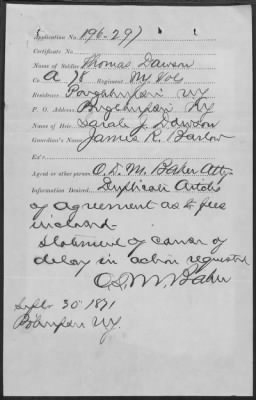 Application No. 196-291
Certificate No.
Name of Soldier Thomas Dawson
Co. A 78 Regiment, NY Vols
Residence Poughkeepsie NY
P. O. Address Poughkeepsie NY
Name of Heir, Sarah J. Dawson
Guardian's Name James R. Barlow
Ex'r
Agent or other person O. D. M. Baker Atty
Information Desired, Duplicate Articles
of agreement as to fees
inclosed
Statement of cause of
delay in action requested
O. D. M. Baker
30" 1871
NY.